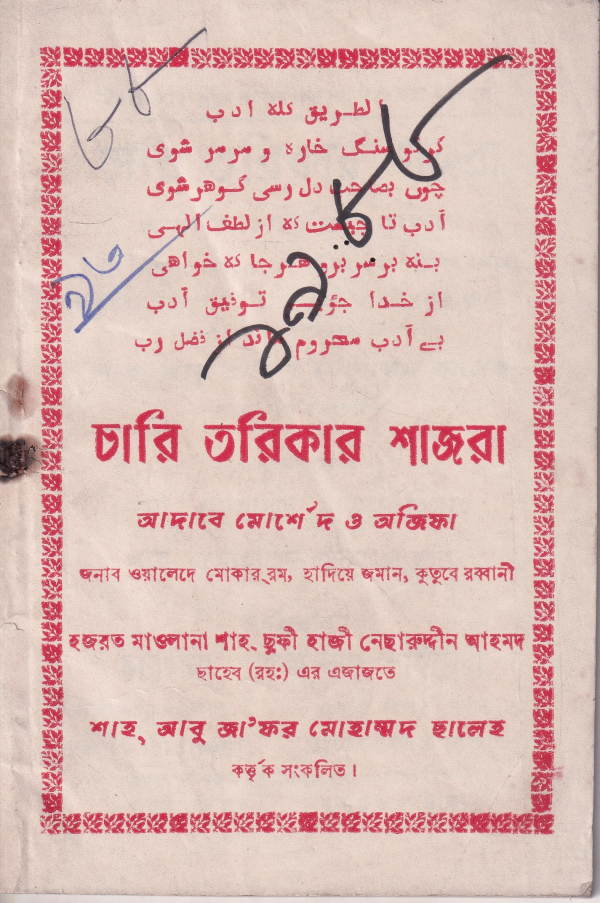 الطریق کله ادب
گردو سنگ خاره و مرمر شوی
چوں بصاحب دل رسی گوهر شوی
آدب تا جیست که از لطف الهی
بنه برسر برو هر جا که خواهی
از خدا جوئیم توفیق آدب
بے آدب محروم ماند از فضل رب
চারি তরিকার শাজরা
আদাবে মোর্শেদ ও অজিফা
জনাব ওয়ালেদে মোকার্‌রম, হাদিয়ে জমান, কুতুবে রব্বানী
হজরত মাওলানা শাহ্ ছুফী হাজী নেছারুদ্দীন আহমদ
ছাহেব (রহঃ) এর এজাজতে
শাহ্ আবু জা'ফর মোহাম্মদ ছালেহ
কর্ত্তৃক সংকলিত।